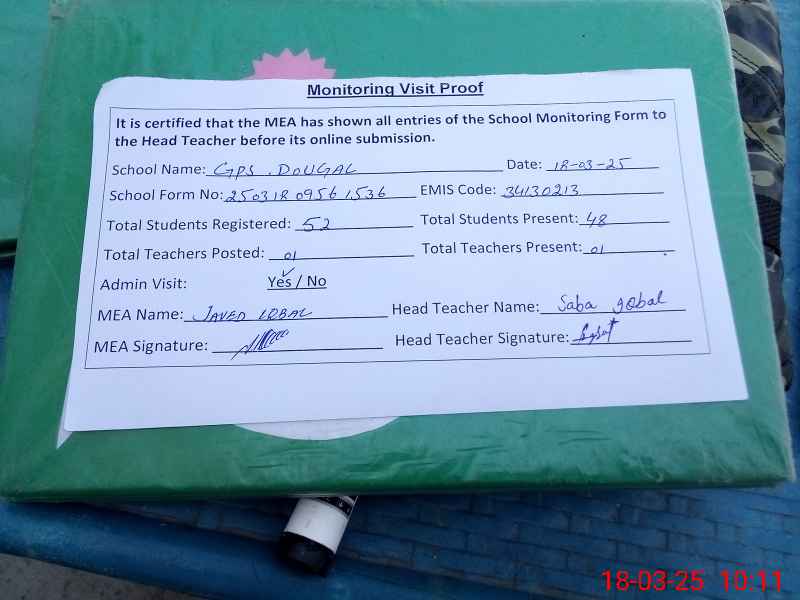 Monitoring Visit Proof
It is certified that the MEA has shown all entries of the School Monitoring Form to
the Head Teacher before its online submission.
School Name: GPS . DOUGAL Date: 18-03-25
School Form No: 250318 0956 1536 EMIS Code: 34130213
Total Students Registered: 52 Total Students Present: 48
Total Teachers Posted: 01 Total Teachers Present: 01
Admin Visit: Yes / No
MEA Name: JAVED IQBAL Head Teacher Name: Saba iqbal
MEA Signature: Head Teacher Signature:
18-03-25 10:11